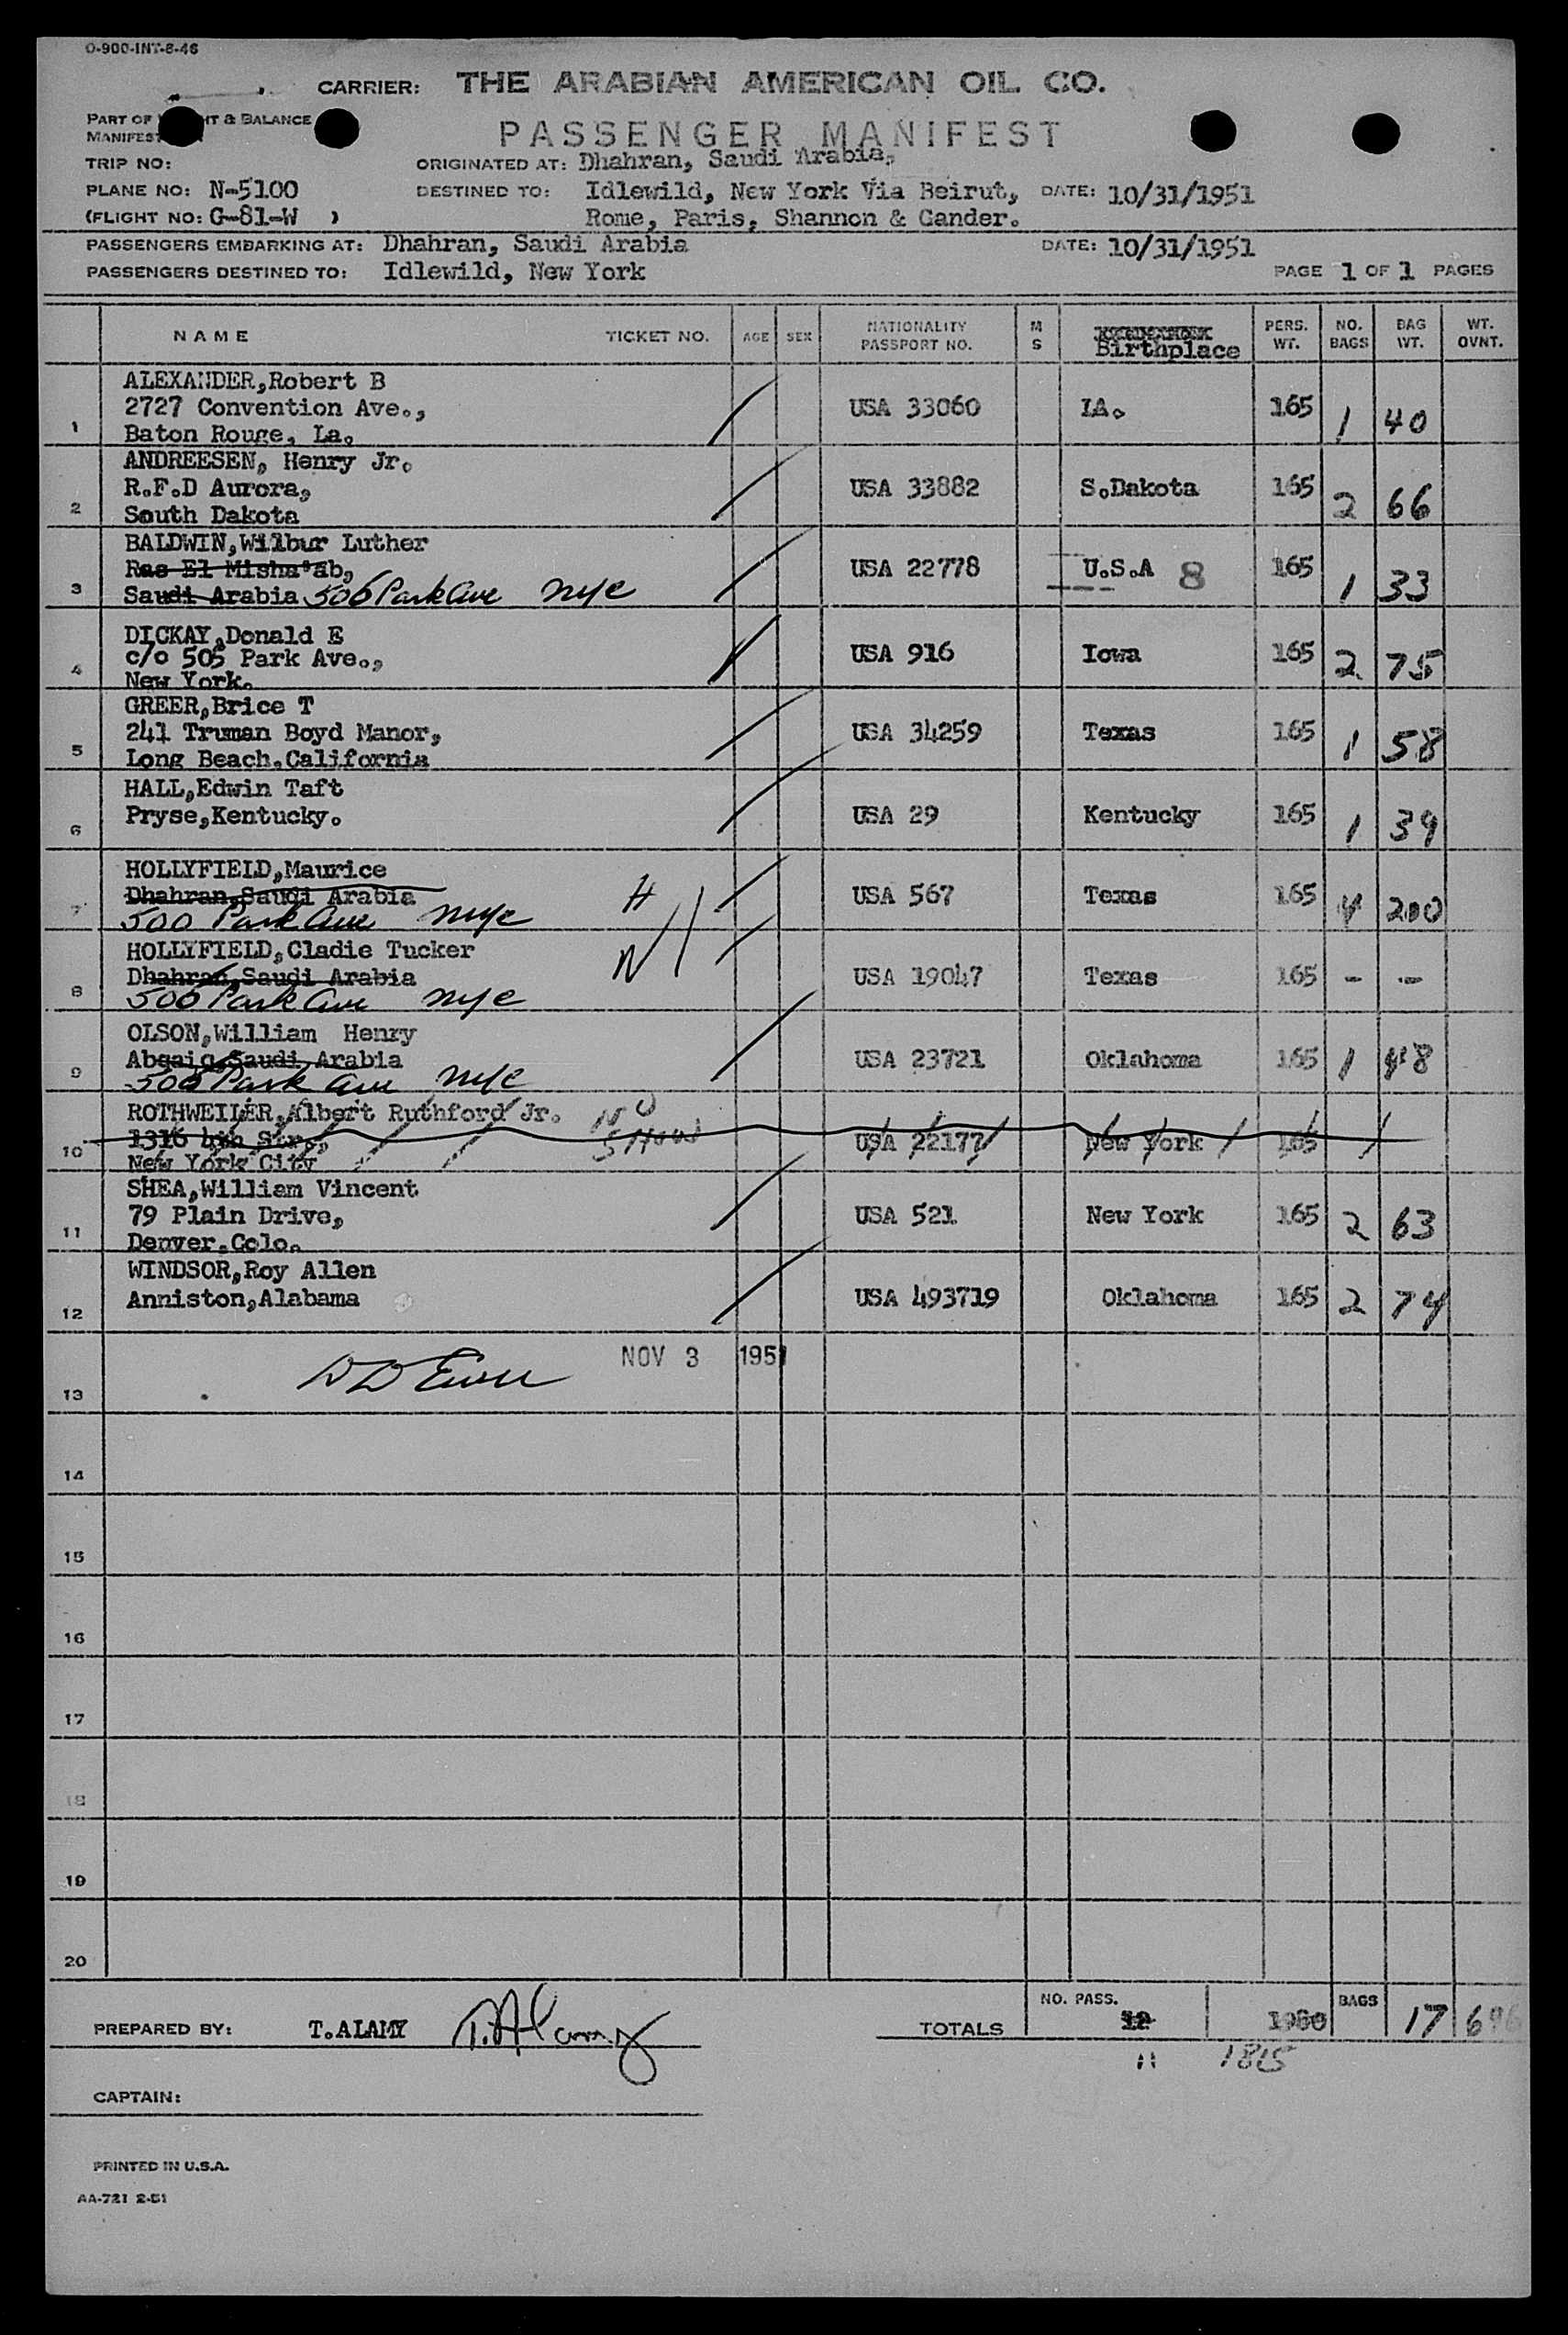 O-900-INT-8-46
CARRIER: THE ARABIAN AMERICAN OIL CO.
PART OF HT & BALANCE
MANIFEST
PASSENGER MANIFEST
TRIP NO: ORIGINATED AT: Dhahran, Saudi Arabia.
PLANE NO: N-5100 DESTINED TO: Idlewild, New York Via Beirut, DATE: 10/31/1951
(FLIGHT NO: G-81-W ) Rome, Paris, Shannon & Gander.
PASSENGERS EMBARKING AT: Dhahran, Saudi Arabia DATE: 10/31/1951
PASSENGERS DESTINED TO: Idlewild, New York PAGE 1 OF 1 PAGES
NAME TICKET NO. AGE SEX NATIONALITY PASSPORT NO. M S Birthplace PERS. WT. NO. BAGS BAG WT. WT. OVNT.
ALEXANDER,Robert B
2727 Convention Ave., USA 33060 LA. 165 1 40
1 Baton Rouge, La.
ANDREESEN, Henry Jr.
R.F.D Aurora, USA 33882 S.Dakota 165 2 66
2 South Dakota
BALDWIN,Wilbur Luther
Ras El Misha'ab, USA 22778 U.S.A 8 165 1 33
3 Saudi Arabia 505 Park Ave NYC
DICKAY,Donald E
c/o 505 Park Ave., USA 916 Iowa 165 2 75
4 New York.
GREER,Brice T
241 Truman Boyd Manor, USA 34259 Texas 165 1 58
5 Long Beach,California
HALL,Edwin Taft
Pryse,Kentucky. USA 29 Kentucky 165 1 39
6
HOLLYFIELD,Maurice
Dhahran,Saudi Arabia H USA 567 Texas 165 4 200
7 500 Park Ave NYC
HOLLYFIELD,Cladie Tucker
Dhahran,Saudi Arabia W USA 19047 Texas 165 - -
8 500 Park Ave NYC
OLSON,William Henry
Abqaiq,Saudi Arabia USA 23721 Oklahoma 165 1 48
9 505 Park Ave NYC
ROTHWEILER,Albert Ruthford Jr. NO SHOW
10 1316 4th Str., USA 22177 New York 165
New York City
SHEA,William Vincent
79 Plain Drive, USA 521 New York 165 2 63
11 Denver,Colo.
WINDSOR,Roy Allen
Anniston,Alabama USA 493719 Oklahoma 165 2 74
12
NOV 3 1951
13
14
15
16
17
18
19
20
NO. PASS. BAGS
PREPARED BY: T.ALAMY T.Alamy TOTALS 12 1980 17 696
11 1815
CAPTAIN:
PRINTED IN U.S.A.
AA-721 2-51